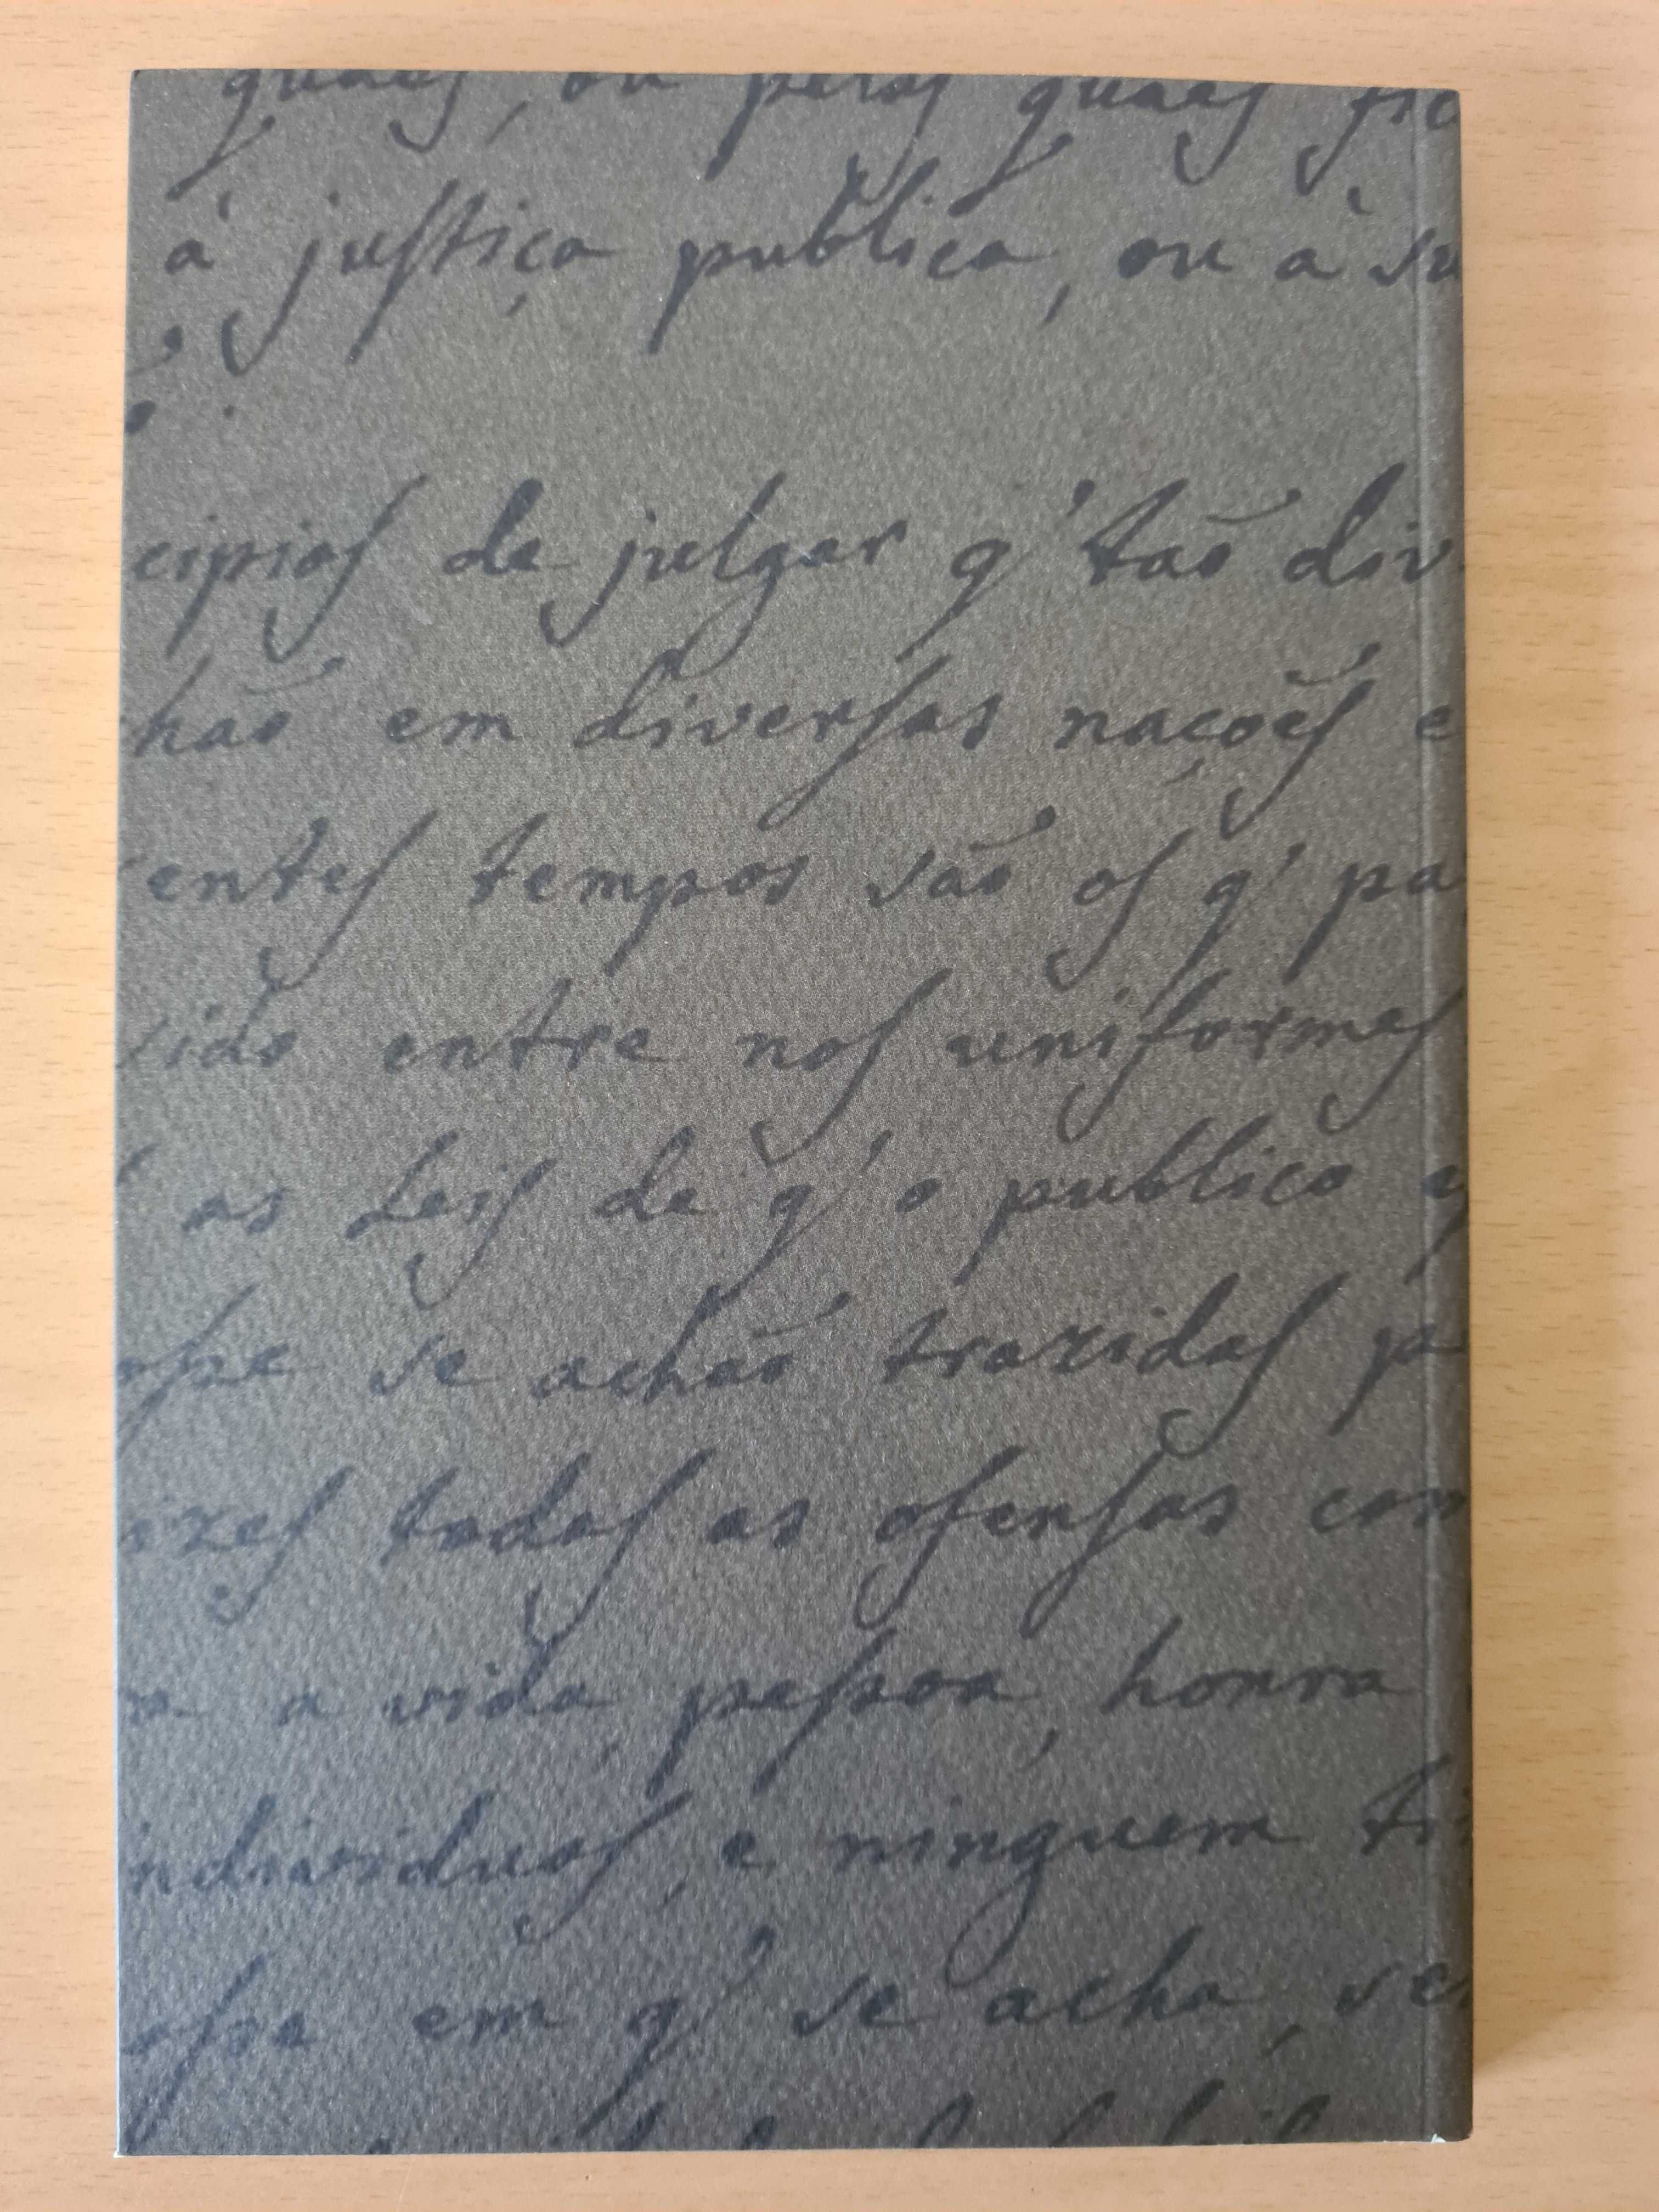 quaes, ou pelos quaes fic
á justiça publica, ou à su
cipios de julgar q' tão div
hão em diversas nações e
entes tempos são os q' pa
sido entre nos uniformes
as Leis de q' o publico
se achão trazidas p
izes todas as ofensas con
a vida, pessoa, honra
ndividuos, e ninguem ti
em q' se acha, se